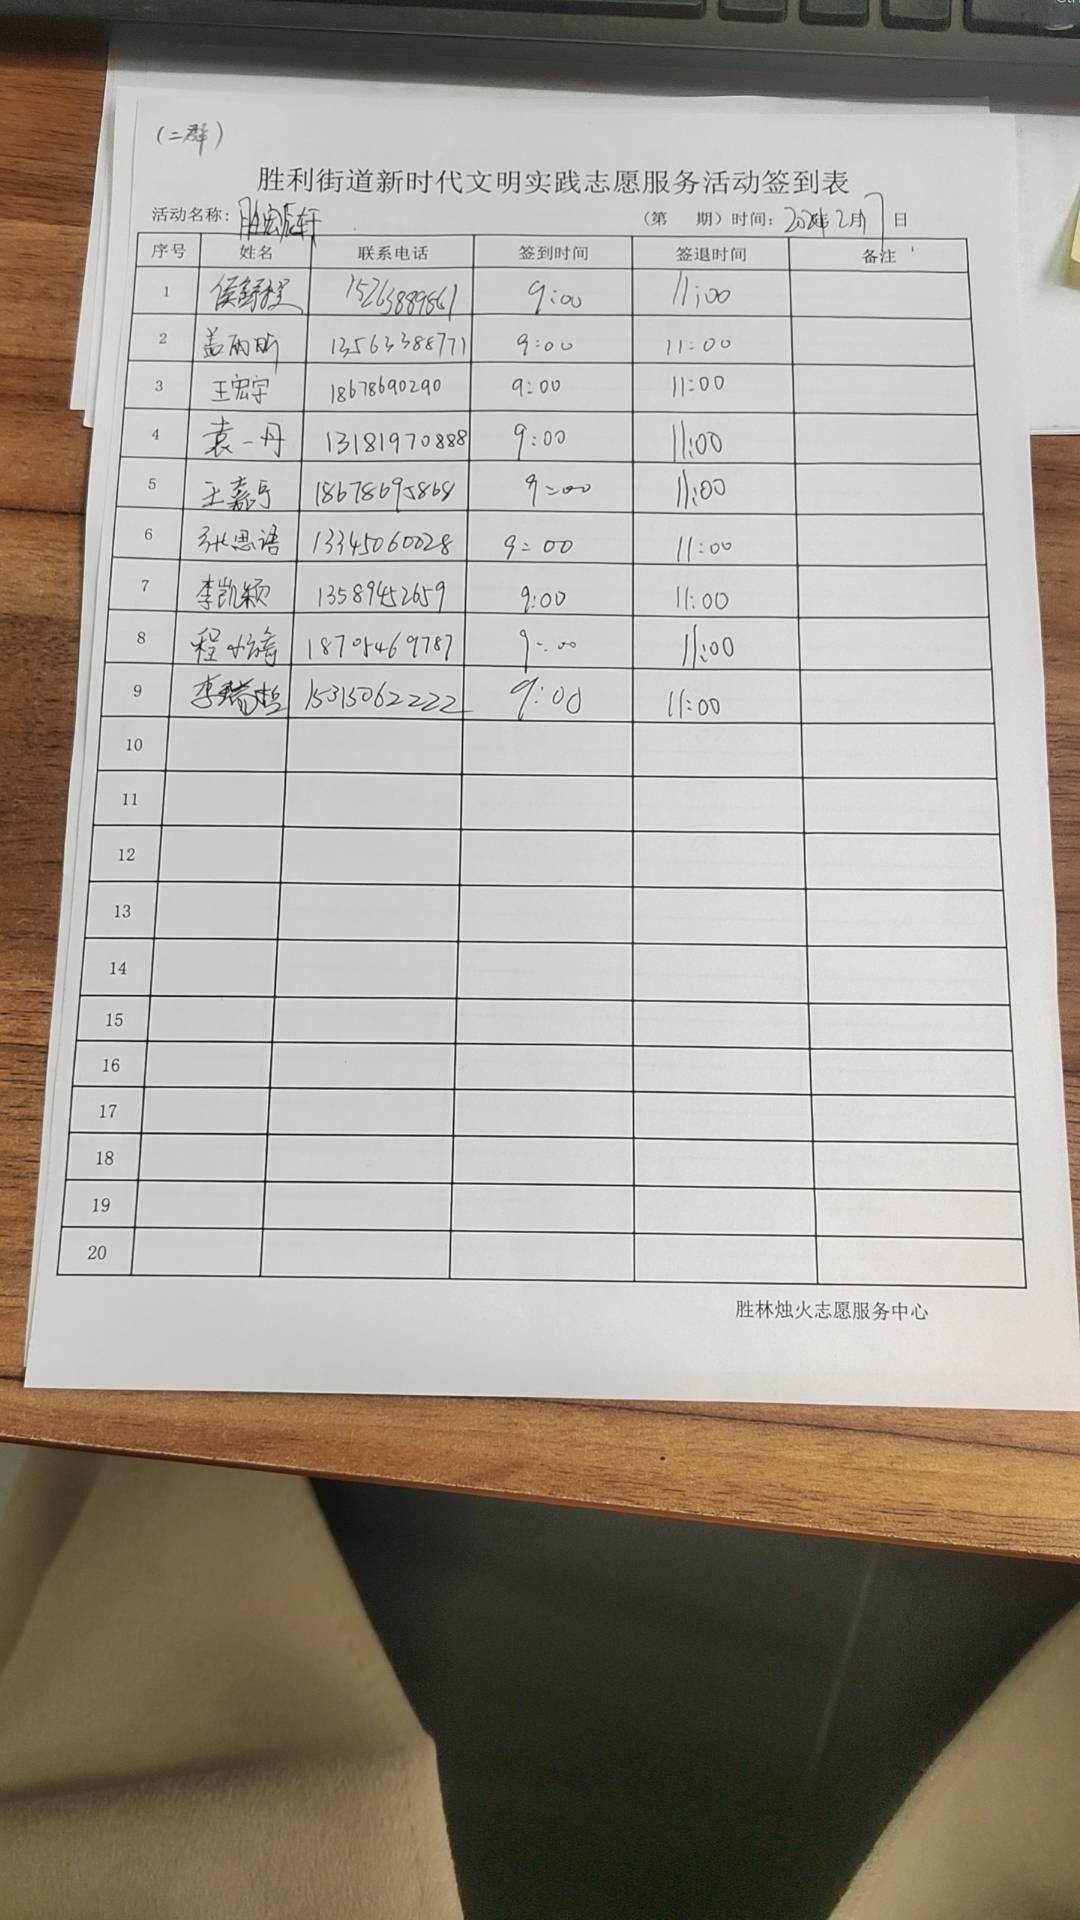 (二群)
胜利街道新时代文明实践志愿服务活动签到表
活动名称: (第 期) 时间: 2月7日
序号 姓名 联系电话 签到时间 签退时间 备注
1 15263889861 9:00 11:00
2 盖丽昕 13563388771 9:00 11:00
3 王宏宇 18678690290 9:00 11:00
4 袁一丹 13181970888 9:00 11:00
5 王嘉亨 18678695868 9:00 11:00
6 张思语 13345060028 9:00 11:00
7 李凯颖 13589452659 9:00 11:00
8 程 18705469787 9:00 11:00
9 李 15315062222 9:00 11:00
10
11
12
13
14
15
16
17
18
19
20
胜林烛火志愿服务中心